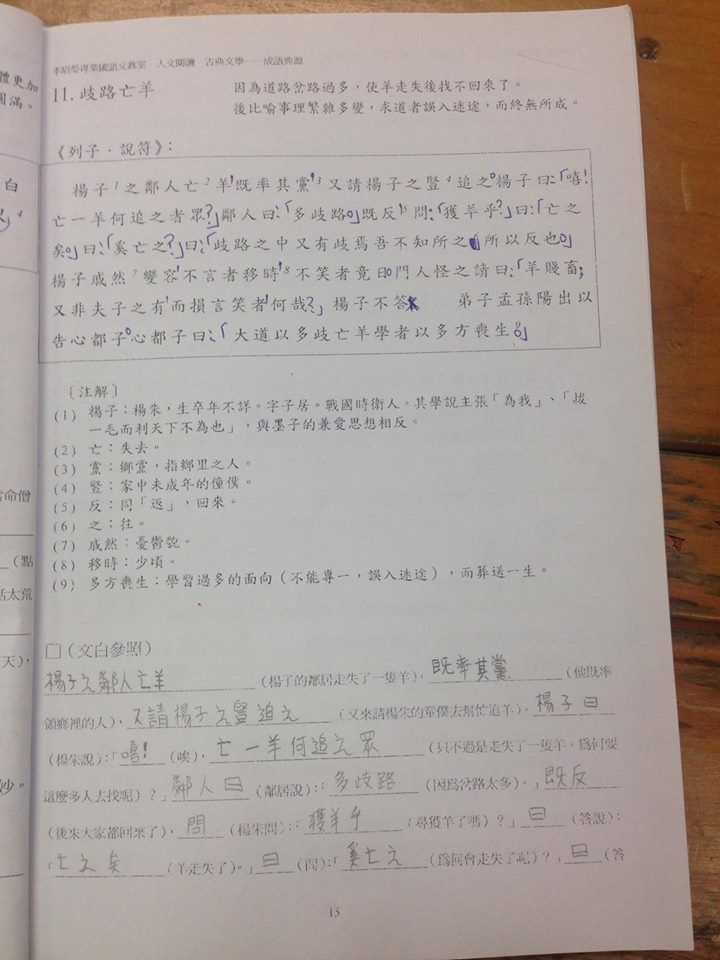 李昭瑩專業國語文教室　人文閱讀　古典文學——成語典源
11. 歧路亡羊
因為道路岔路過多，使羊走失後找不回來了。
後比喻事理繁雜多變，求道者誤入迷途，而終無所成。
《列子．說符》：
楊子1之鄰人亡2羊，既率其黨，3又請楊子之豎4追之。楊子曰：「嘻！
亡一羊何追之者眾？」鄰人曰：「多歧路。」既反，5問：「獲羊乎？」曰：「亡之
矣。」曰：「奚亡之？」曰：「歧路之中又有歧焉吾不知所之，所以反也。」
楊子戚然7變容，不言者移時，8不笑者竟日。門人怪之請曰：「羊賤畜；
又非夫子之有，而損言笑者，何哉？」楊子不答。　弟子孟孫陽出以
告心都子。心都子曰：「大道以多歧亡羊學者以多方喪生。」
〔注解〕
(1) 楊子：楊朱，生卒年不詳。字子居。戰國時衛人。其學說主張「為我」、「拔
一毛而利天下不為也」，與墨子的兼愛思想相反。
(2) 亡：失去。
(3) 黨：鄉黨，指鄉里之人。
(4) 豎：家中未成年的僮僕。
(5) 反：同「返」，回來。
(6) 之：往。
(7) 戚然：憂鬱貌。
(8) 移時：少頃。
(9) 多方喪生：學習過多的面向（不能專一，誤入迷途），而葬送一生。
□（文白參照）
楊子之鄰人亡羊（楊子的鄰居走失了一隻羊），既率其黨（他既率
領鄉裡的人），又請楊子之豎追之（又來請楊朱的童僕去幫忙追羊）。楊子曰
（楊朱說）：「嘻！（唉），亡一羊何追之眾（只不過是走失了一隻羊，為何要
這麼多人去找呢）？」鄰人曰（鄰居說）：「多歧路（因為岔路太多）。」既反
（後來大家都回來了），問（楊朱問）：「獲羊乎（尋獲羊了嗎）？」曰（答說）：
「亡之矣（羊走失了）。」曰（問）：「奚亡之（為何會走失了呢）？」曰（答
15
體更加
圓滿。
白
4
當命僧
（點
話太荒
天），
妙。